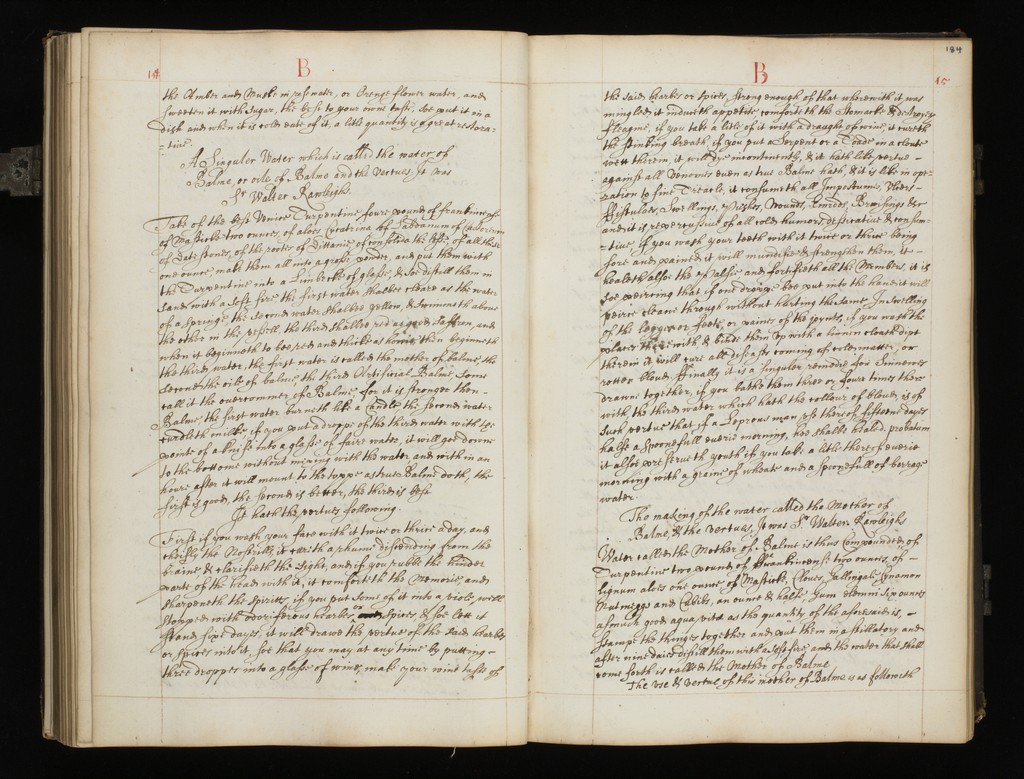 184
14
B
the Amber and Muske in rosewater, or Orenge flower water, and
sweeten it with Sugar, the best to your owne tast, soe put it in a
dish and when it is cold eate of it, a litle quantity is a great restora=
=tive.
A Singuler Water which is called the water of
Balme, or oile of Balme and the vertues, It was
Sr Walter Rawleighs.
Take of the best Venice Turpentine foure pound of frankinse
of Masticke two ounces, of aloes Cicatrina of Labdanum of Castorium
of date stones, of the rootes of dittanie of consolida the lesse, of all these
one ounce make them all into a grosse powder, and put them with
the Turpentine into a Limbecke of glasse, & soe distill them in
Sand with a soft fire the first water shalbee cleare as the water
of a Spring, the second water shalbee yellow, & swimmeth above
the other in the vessell the third shalbee red as Saffron, and
when it beginneth to bee red and thicke as honie then beginneth
the third water, the first water is called the mother of balme, the
second the oile of balme, the third Artificial Balme Some
call it the overcommer of Balme, for it is stronger then
Balme, the first water burneth like a Candle the second water
curdleth milke if you put a drope of the third water with the
pointe of a knife into a glasse of faire water, it will goe downe
to the bottome without mixing with the water and within an
houre after it will mount to the toppe as true Balme doth, the
first is good, the second is better, the third is best
It hath the vertues following.
First if you wash your face with it twice or thrice a day, and
chiefly the Nostrills it cureth a rhume discending from the
braine & clarifieth the Sight, and if you rubbe the hinder
parte of the head with it, it comforteth the Memorie, and
sharpeneth the Spirits, if you put some of it into a viole, well
stopped with odoriferous hearbes or spices, & soe lett it
Stand sixe dayes, it will drawe the vertue of the said hearbes
or Spices into it, soe that you may at any time by putting
three droppes into a glasse of wine, make your wine tast of
B
15
the said hearbs or spices, strong enough of that wherewith it was
mingled it induceth appetite comforteth the Stomacke & destroyeth
fleagme, if you take a litle of it with a draught of wine, it cureth
the stinking breath, if you put a Serpent or a Toade in a cloute
wett therein, it will dye incontinently, & it hath like vertue
against all venomes even as true Balme hath, & it is like in ope=
ration to fine Treacle, it consumeth all Impostumes, Ulcers
ffistulaes, Swellings, Pushes, Wounds, Emrods, Brusings &c
and it is repercussive of all cold humors, dessicative & consum=
=tive, if you wash your teeth with it twice or thrice being
sore and pained it will mundifie & strengthen them, it
healeth alsoe the palsie and fortifieth all the Members, it is
soe peircing that if one droppe bee put into the hand it will
peirce cleane through without hurting the same. In swelling
of the legges or feete, or paines of the joynts, if you wash the
places therewith & binde them up with a linnen cloath dipt
therein it will cure all diseases coming of cold matter, or
rotten bloud. ffinally it is a singuler remedie for Sinnewes
drawne together, if you bathe them three or foure times there
with the third water which hath the collour of bloud, is of
such vertue that if a Leprous man use thereof fifteene dayes
halfe a spoonefull everie morning, hee shalbe healed, probatum
it alsoe preserveth youth if you take a litle thereof everie
morning with a graine of wheate and a spoonefull of borrage
water.
The making of the water called the Mother of
Balme, & the vertues, It was Sr Walter Rawleighs
Water called the Mother of Balme is thus Compounded of
Turpentine two pound of ffrankinsense two ounces, of
lignum aloes one ounce of Masticke, Cloves, Gallingale, Cynamon
Nutmeggs and Cubibs, an ounce & halfe Gum elemni six ounces
as much good aqua vita as the quantity of the aforesaid is,
stampe the thinges together and put them in a stillatory and
after nine daies distill them with a soft fire, and the water that shall
come forth is called the Mother of Balme
The use & vertue of this mother of Balme is as followeth